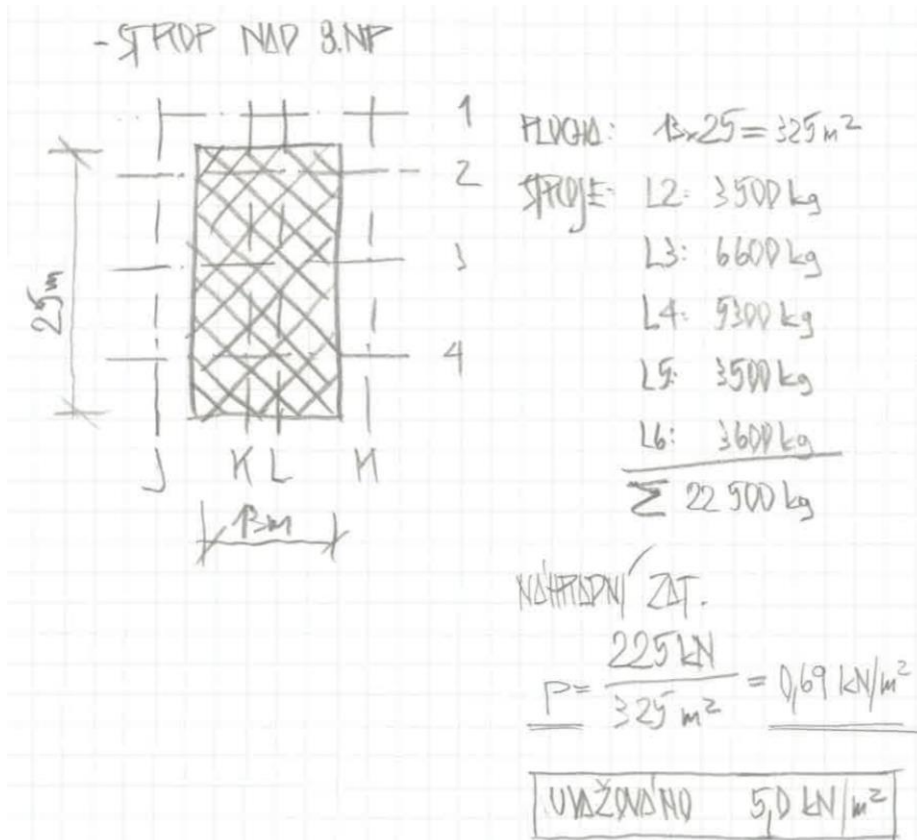 - STROP NAD 8.NP
1
2
3
4
25m
J K L M
13m
PLOCHA: 13x25 = 325 m²
STROJE: L2: 3500 kg
L3: 6600 kg
L4: 5300 kg
L5: 3500 kg
L6: 3600 kg
Σ 22 500 kg
NÁHRADNÍ ZAT.
p = 225 kN / 325 m² = 0,69 kN/m²
UVAŽOVÁNO 5,0 kN/m²